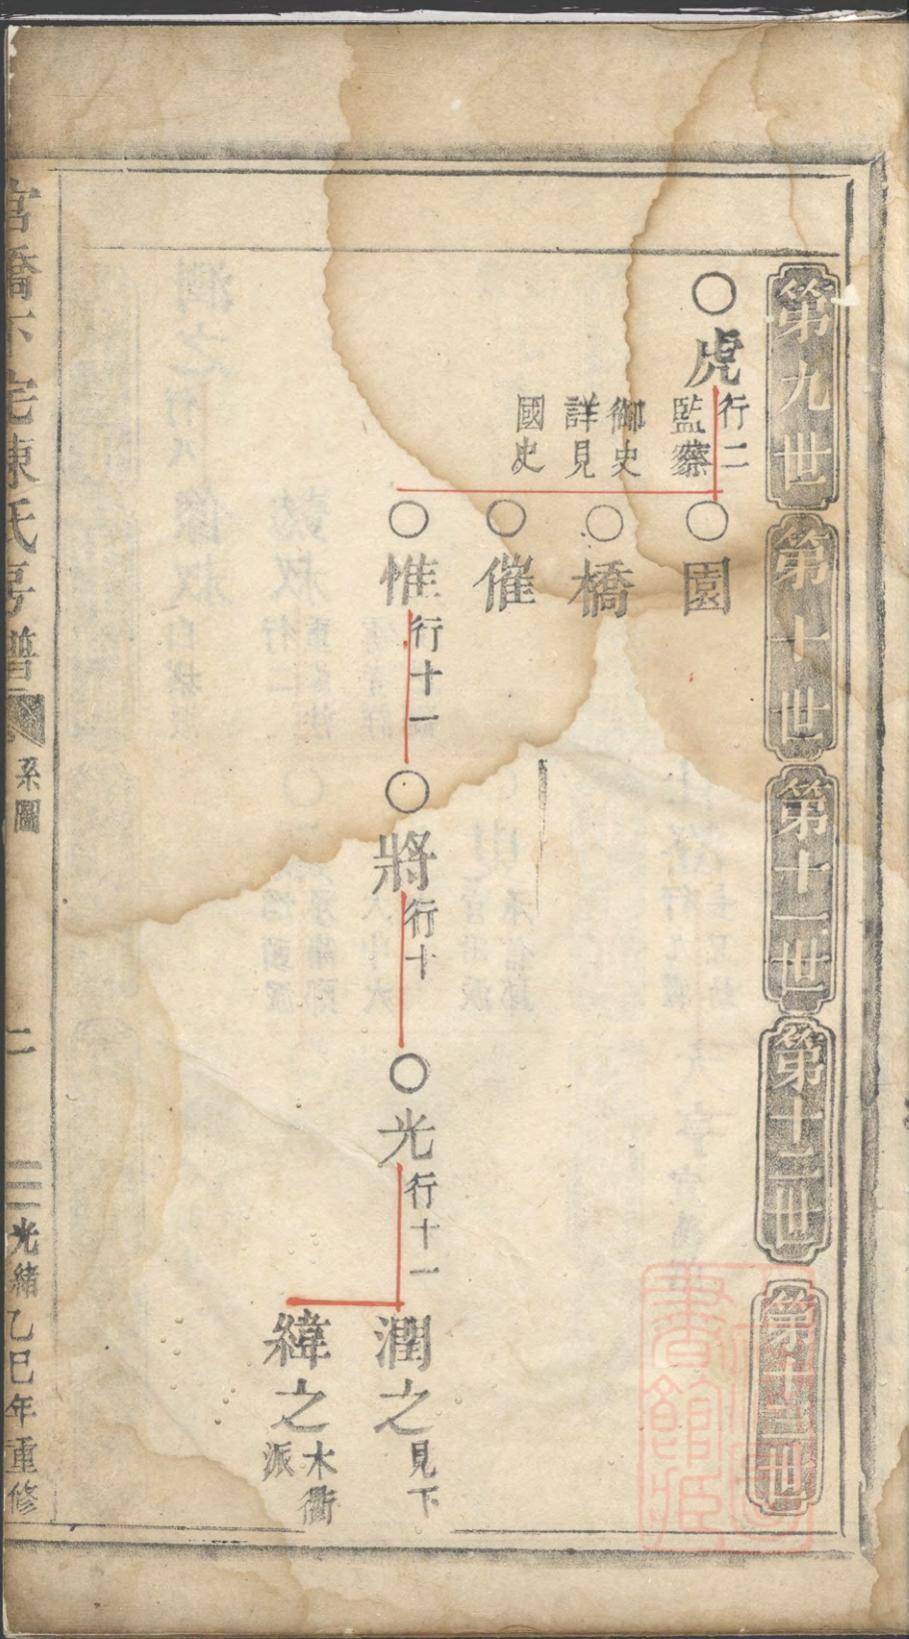 第九世
第十世
第十一世
第十二世
第十三世
○虎
行二
監察
御史
詳見
國史
○園
○橋
○催
○惟行十一
○將行十
○光行十一
潤之見下
緯之
木衢
派
宅陳氏房譜
系圖
二
光緒乙巳年重修